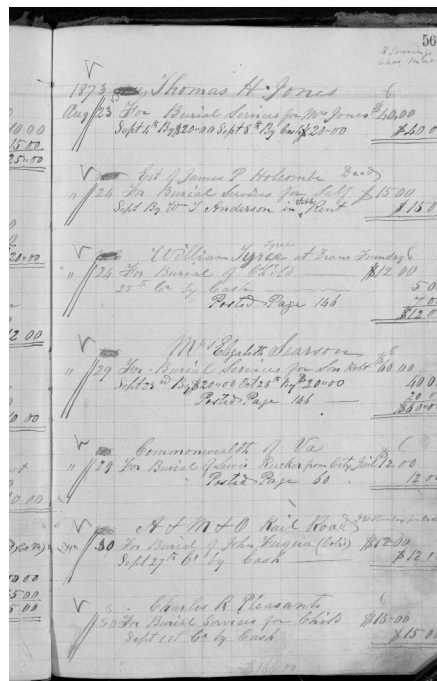 56
1873 Thomas H. Jones 6
Aug 23 For Burial Services for Mrs Jones $40.00
Sept 4th By $20.00 Sept 8th By Cash $20.00 $40.00
Est of James P Holcombe Dead
" 24 For Burial Services for Self $15.00
Sept By Wm T Anderson in Rent $15.0
William Tyree at Foundry 6
Tyree
" 24 For Burial of Child $12.00
25th Cr by Cash 5.00
Posted Page 146 7.0
$12.0
Mrs Elizabeth Searson 6
" 29 For Burial Services for Son Robt $60.00
Sept 23rd By $20.00 Oct 28th By $20.00 40.0
Posted Page 146 20.0
$60.0
Commonwealth of Va 6
" 29 For Burial of Lewis Rucker from City Jail $12.00
Posted Page 60 12.0
A & M & O Rail Road
" 30 For Burial of John Fuqua (Cold) $12.00
Sept 27th Cr by Cash $12.0
Charles R Pleasants 6
" 30 For Burial Services for Child $15.00
Sept 1st Cr by Cash $15.0
10.00
15.00
25.00
20.00
12.00
0.00
5.00
5.00